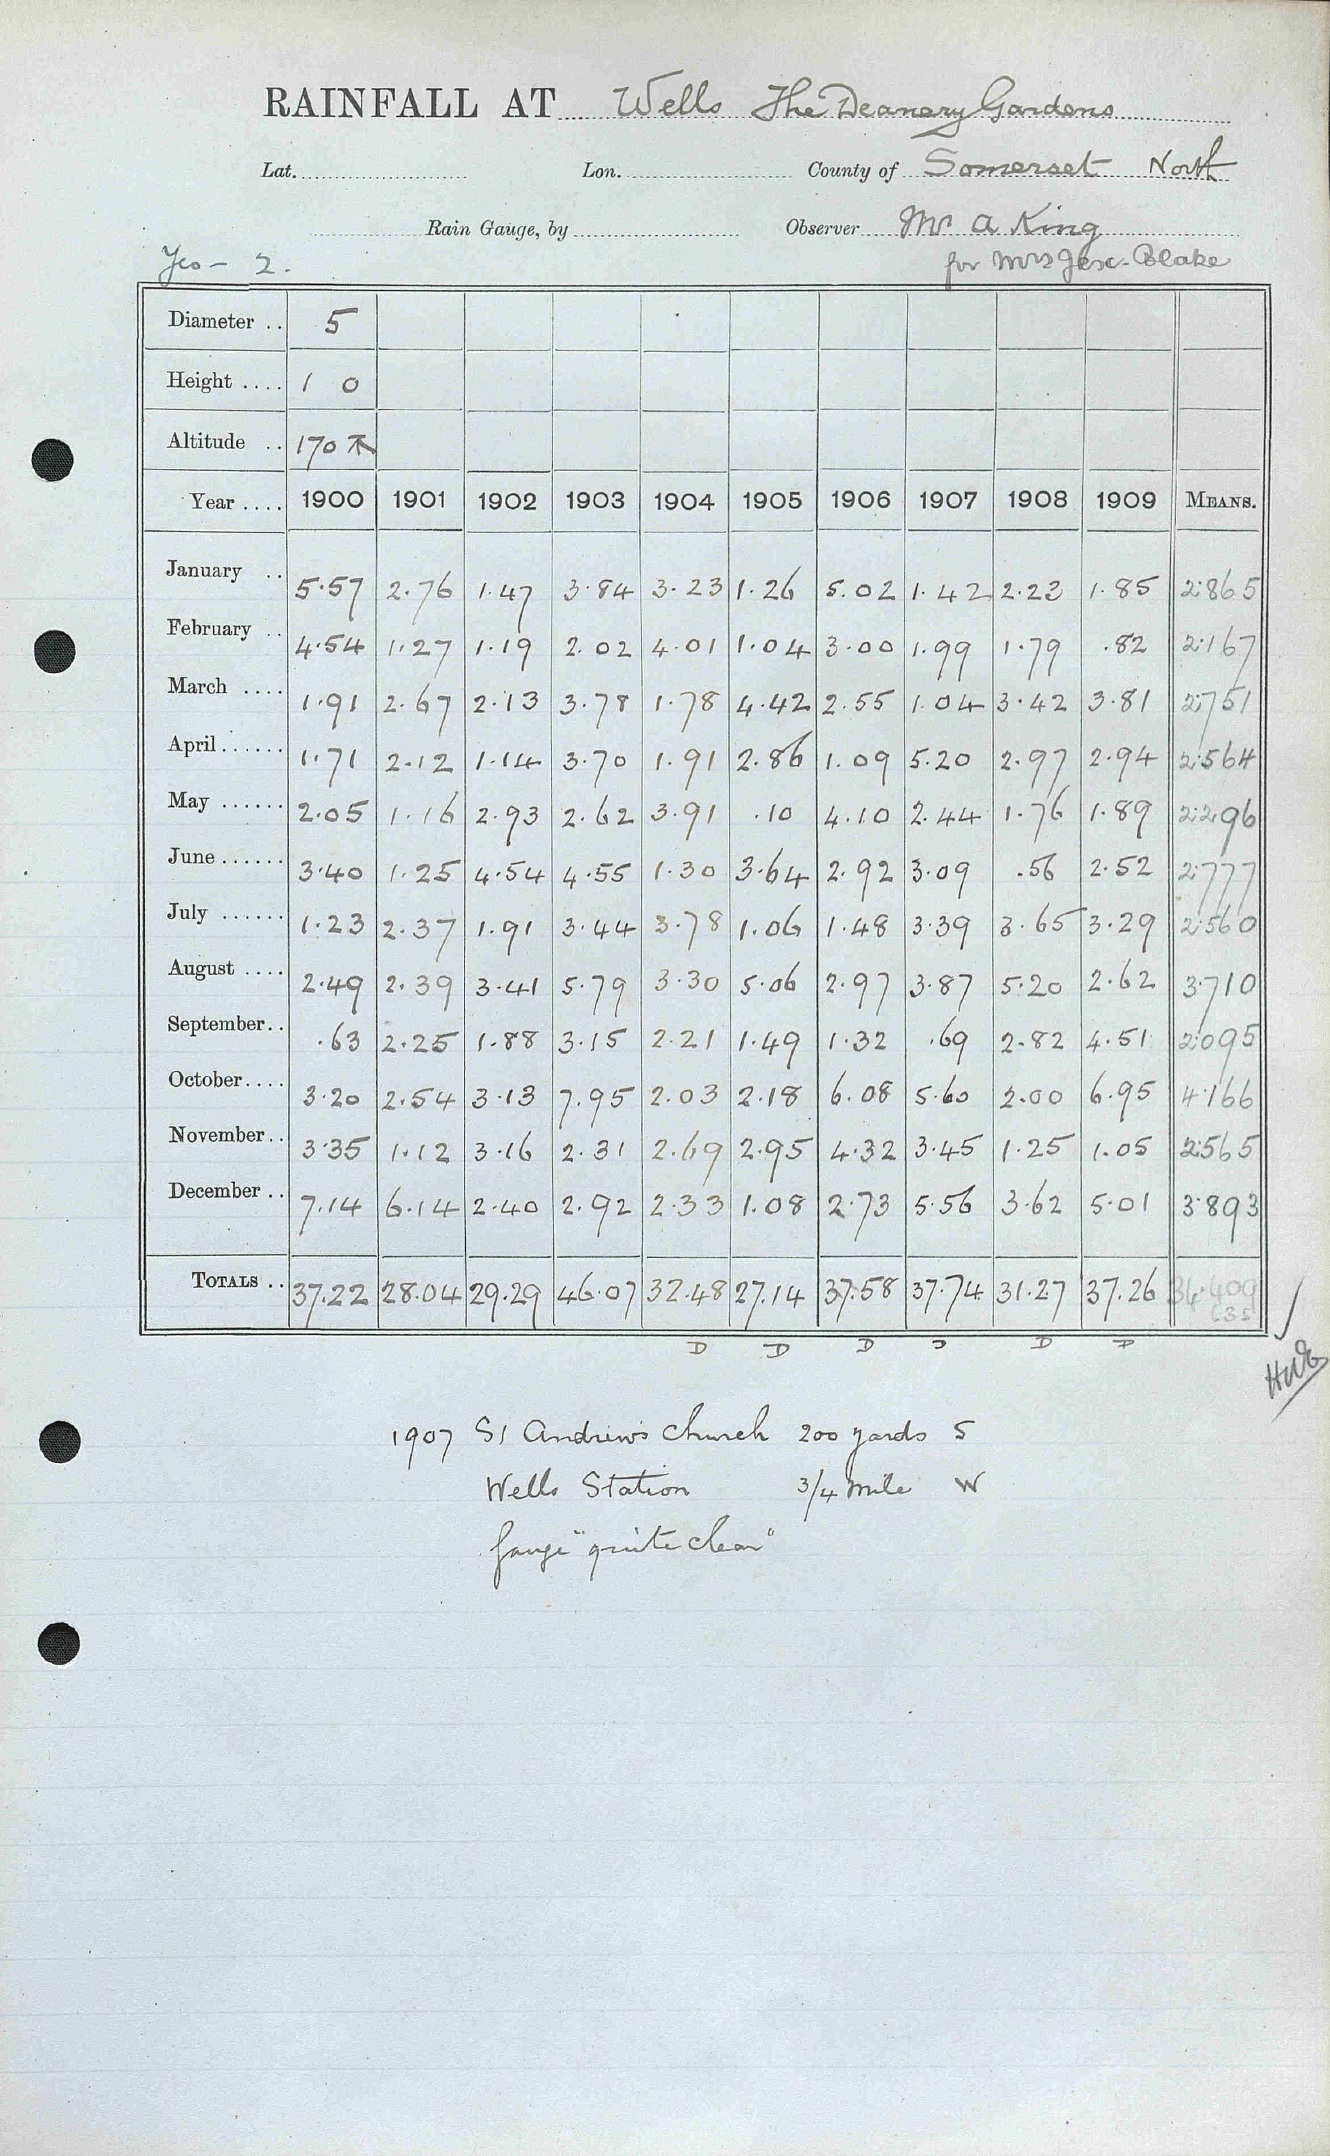 RAINFALL AT Wells The Deanery Gardens
Lat. Lon. County of Somerset North
Rain Gauge, by Observer Mr A King
for Mrs Jex-Blake
Yeo - 2.
Diameter .. 5
Height .... 1 0
Altitude .. 170
Year .... 1900 1901 1902 1903 1904 1905 1906 1907 1908 1909 MEANS.
January .. 5.57 2.76 1.47 3.84 3.23 1.26 5.02 1.42 2.23 1.85 2.865
February .. 4.54 1.27 1.19 2.02 4.01 1.04 3.00 1.99 1.79 .82 2.167
March .... 1.91 2.67 2.13 3.78 1.78 4.42 2.55 1.04 3.42 3.81 2.751
April ...... 1.71 2.12 1.14 3.70 1.91 2.86 1.09 5.20 2.97 2.94 2.564
May ...... 2.05 1.16 2.93 2.62 3.91 .10 4.10 2.44 1.76 1.89 2.296
June ...... 3.40 1.25 4.54 4.55 1.30 3.64 2.92 3.09 .56 2.52 2.777
July ...... 1.23 2.37 1.91 3.44 3.78 1.06 1.48 3.39 3.65 3.29 2.560
August .... 2.49 2.39 3.41 5.79 3.30 5.06 2.97 3.87 5.20 2.62 3.710
September.. .63 2.25 1.88 3.15 2.21 1.49 1.32 .69 2.82 4.51 2.095
October.... 3.20 2.54 3.13 7.95 2.03 2.18 6.08 5.60 2.00 6.95 4.166
November.. 3.35 1.12 3.16 2.31 2.69 2.95 4.32 3.45 1.25 1.05 2.565
December .. 7.14 6.14 2.40 2.92 2.33 1.08 2.73 5.56 3.62 5.01 3.893
TOTALS .. 37.22 28.04 29.29 46.07 32.48 27.14 37.58 37.74 31.27 37.26 34.409
D D D D D D
1907 St Andrew's Church 200 yards S
Wells Station 3/4 mile W
Gauge "quite clear"